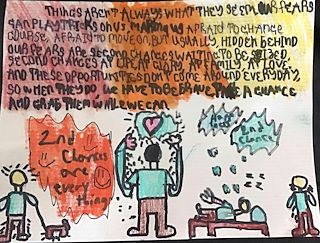 THINGS AREN'T ALWAYS WHAT THEY SEEM, OUR FEARS
CAN PLAY TRICKS ON US, MAKING US AFRAID TO CHANGE
COURSE, AFRAID TO MOVE ON, BUT USUALLY, HIDDEN BEHIND
OUR FEARS ARE SECOND CHANCES WAITING TO BE SEIZED
SECOND CHANCES AT LIFE, AT GLORY, AT FAMILY, AT LOVE.
AND THESE OPPORTUNITIES DON'T COME AROUND EVERYDAY,
SO WHEN THEY DO, WE HAVE TO BE BRAVE, TAKE A CHANCE
AND GRAB THEM WHILE WE CAN
2nd
Chances
are
every
thing
2nd
Chance
z z